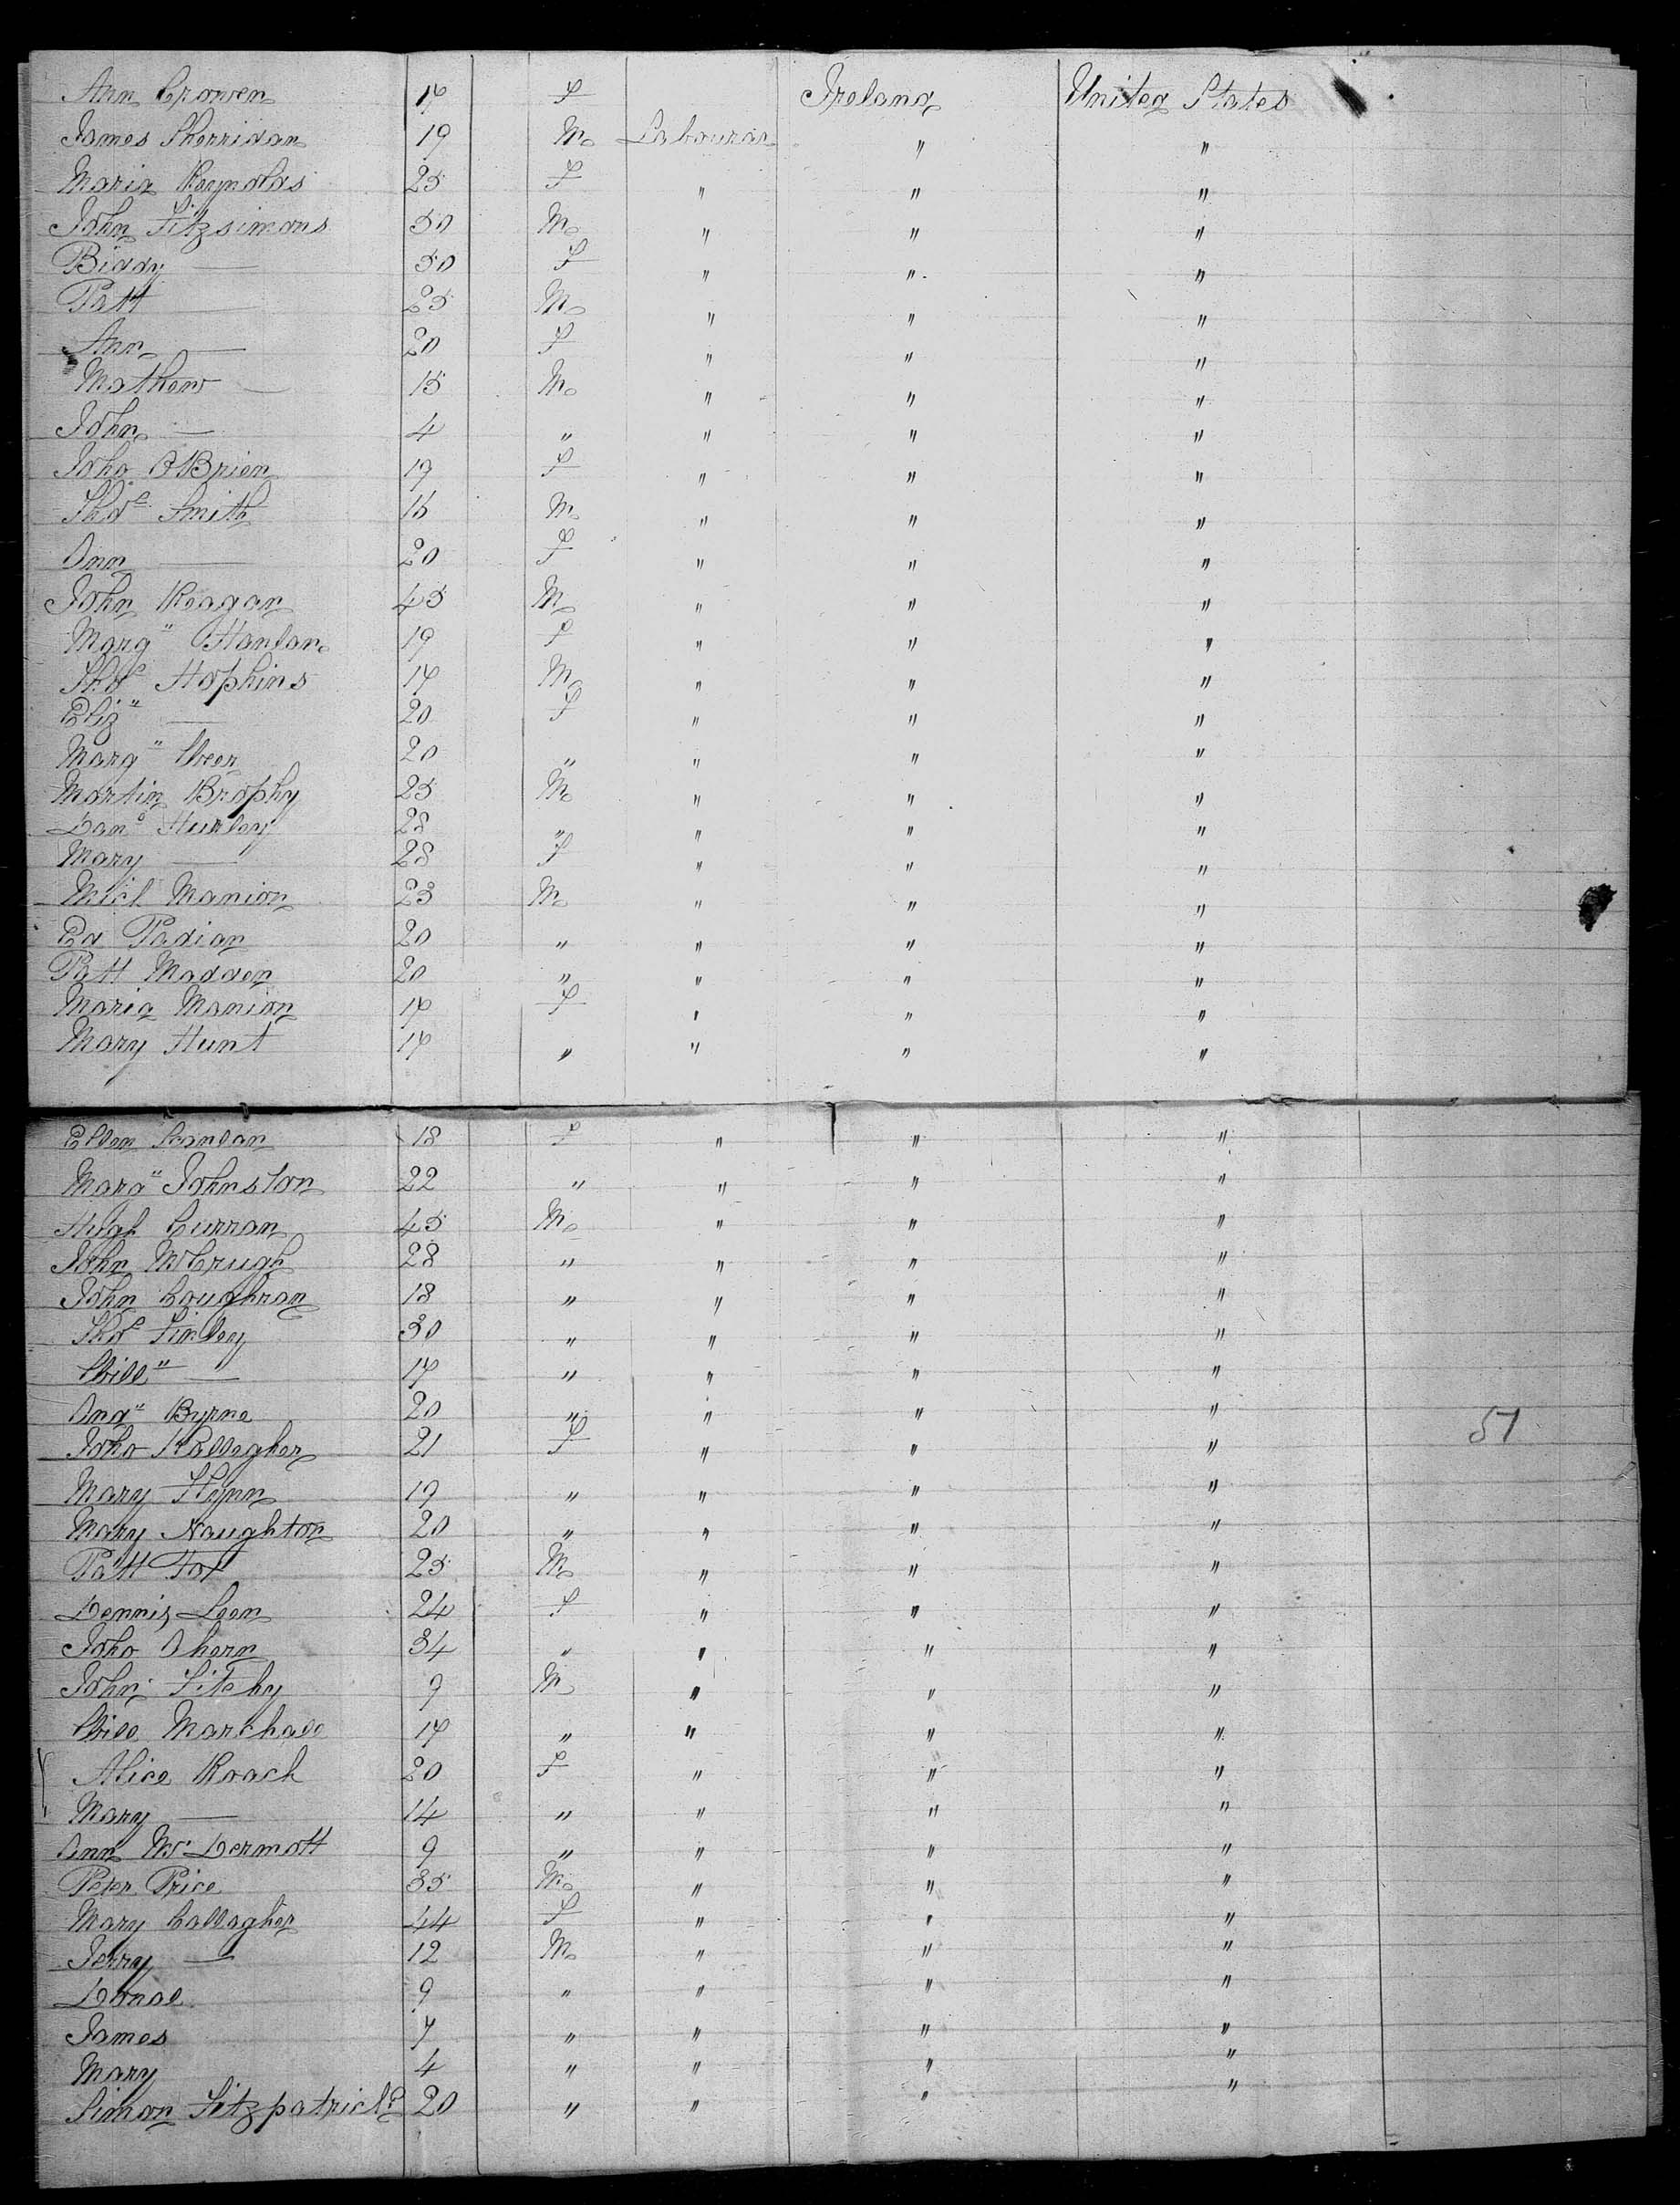 Ann Crowen 17 F Ireland United States
James Sherridan 19 M Labourar " "
Maria Reynolds 25 F " " "
John Fitzsimons 50 M " " "
Biddy — 50 F " " "
Patt — 25 M " " "
Ann — 20 F " " "
Mathew — 15 M " " "
John — 4 " " " "
Joha OBrien 19 F " " "
Thos Smith 16 M " " "
Ann — 20 F " " "
John Reagan 45 M " " "
Marg" Hanlan 19 F " " "
Thos Hopkins 17 M " " "
Eliz" — 20 F " " "
Marg" 20 " " " "
Martin Brophy 25 M " " "
Dano Hurley 28 " " " "
Mary — 28 F " " "
Micl Manion 23 M " " "
Ed Padian 20 " " " "
Patt Madden 20 " " " "
Maria Manion 17 F " " "
Mary Hunt 17 " " " "
Ellen Scanlan 18 F " " "
Marg" Johnston 22 " " " "
Hugh Curran 45 M " " "
John McCrugh 28 " " " "
John Coughran 18 " " " "
Thos Finley 30 " " " "
Will" — 17 " " " "
And" Byrne 20 " " " "
Joha Kallegher 21 F " " "
Mary Flynn 19 " " " "
Mary Naughton 20 " " " "
Patt Fox 25 M " " "
Dennis Leen 24 F " " "
Joha Ahern 34 " " " "
John Fitchy 9 M " " "
Will Marchall 17 " " " "
Alice Roach 20 F " " "
Mary — 14 " " " "
Ann McDermott 9 " " " "
Peter Price 35 M " " "
Mary Callagher 44 F " " "
Jerry — 12 M " " "
Donal 9 " " " "
James 7 " " " "
Mary 4 " " " "
Simon Fitzpatrick 20 " " " "
51